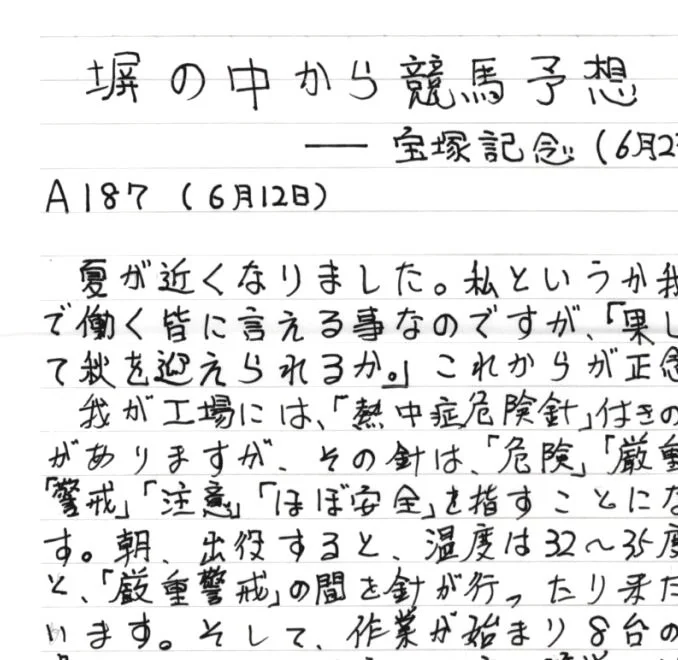 塀の中から競馬予想
── 宝塚記念(6月2
A187(6月12日)
夏が近くなりました。私というか我
で働く皆に言える事なのですが、「果し
て秋を迎えられるか。」これからが正念
我が工場には、「熱中症危険針」付きの
がありますが、その針は、「危険」「厳重
「警戒」「注意」「ほぼ安全」を指すことにな
す。朝、出役すると、温度は32〜35度
と、「厳重警戒」の間を針が行ったり来た
います。そして、作業が始まり8台の